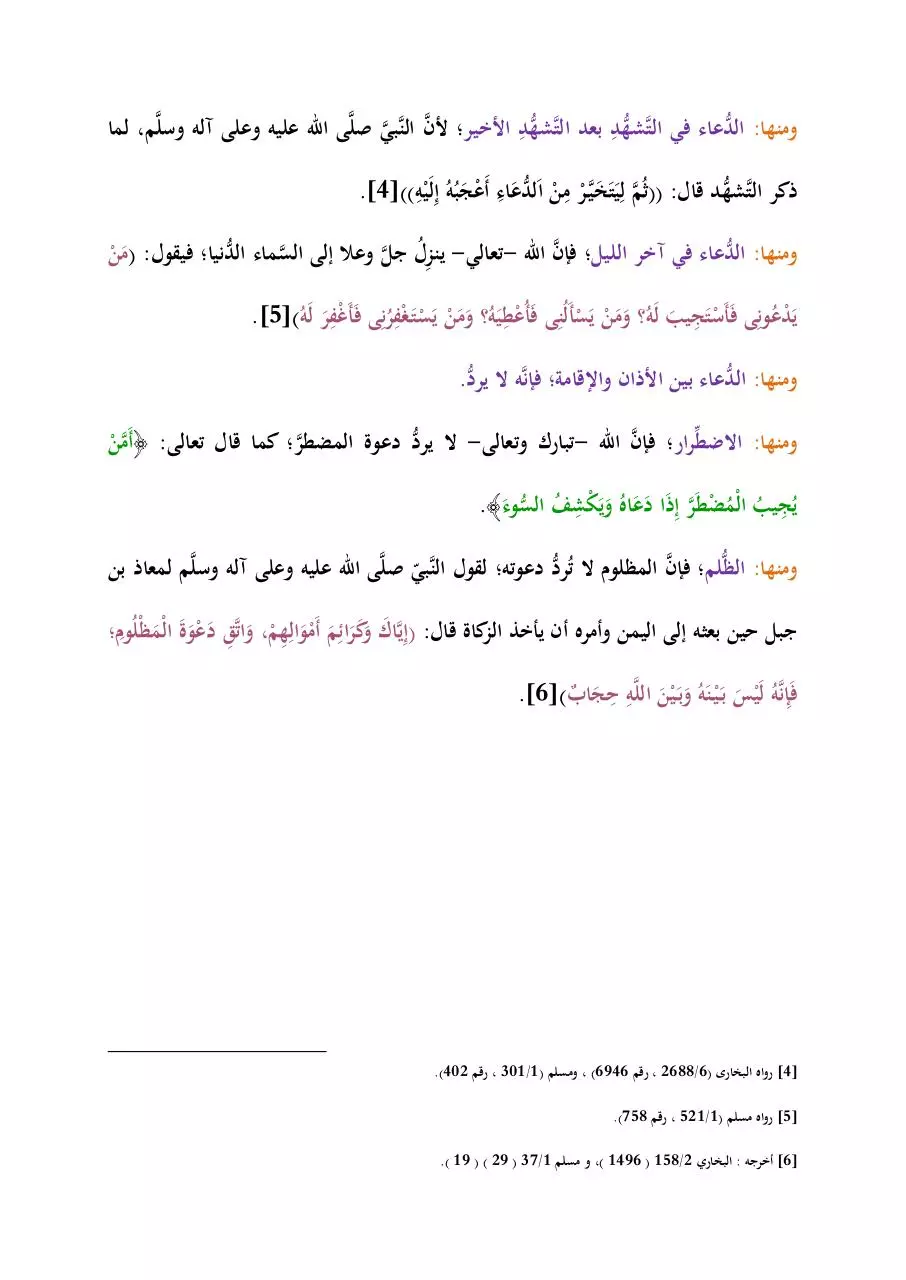 ومنها: الدُّعاء في التَّشهُّدِ بعد التَّشهُّدِ الأخير؛ لأنَّ النَّبيَّ صلَّى الله عليه وعلى آله وسلَّم، لما
ذكر التَّشهُّد قال: ((ثُمَّ لِيَتَخَيَّرْ مِنْ اَلدُّعَاءِ أَعْجَبُهُ إِلَيْهِ))[4].
ومنها: الدُّعاء في آخر الليل؛ فإنَّ الله –تعالي– ينزِلُ جلَّ وعلا إلى السَّماء الدُّنيا؛ فيقول: (مَنْ
يَدْعُونِى فَأَسْتَجِيبَ لَهُ؟ وَمَنْ يَسْأَلُنِى فَأُعْطِيَهُ؟ وَمَنْ يَسْتَغْفِرُنِى فَأَغْفِرَ لَهُ)[5].
ومنها: الدُّعاء بين الأذان والإقامة؛ فإنَّه لا يردُّ.
ومنها: الاضطِّرار؛ فإنَّ الله –تبارك وتعالى– لا يردُّ دعوة المضطرَّ؛ كما قال تعالى: ﴿أَمَّنْ
يُجِيبُ الْمُضْطَرَّ إِذَا دَعَاهُ وَيَكْشِفُ السُّوءَ﴾.
ومنها: الظُّلم؛ فإنَّ المظلوم لا تُردُّ دعوته؛ لقول النَّبيّ صلَّى الله عليه وعلى آله وسلَّم لمعاذ بن
جبل حين بعثه إلى اليمن وأمره أن يأخذ الزكاة قال: (إِيَّاكَ وَكَرَائِمَ أَمْوَالِهِمْ، وَاتَّقِ دَعْوَةَ الْمَظْلُومِ؛
فَإِنَّهُ لَيْسَ بَيْنَهُ وَبَيْنَ اللَّهِ حِجَابٌ)[6].
[4] رواه البخارى (2688/6 ، رقم 6946) ، ومسلم (301/1 ، رقم 402).
[5] رواه مسلم (521/1 ، رقم 758).
[6] أخرجه : البخاري 158/2 ( 1496 )، و مسلم 37/1 ( 29 ) ( 19 ).